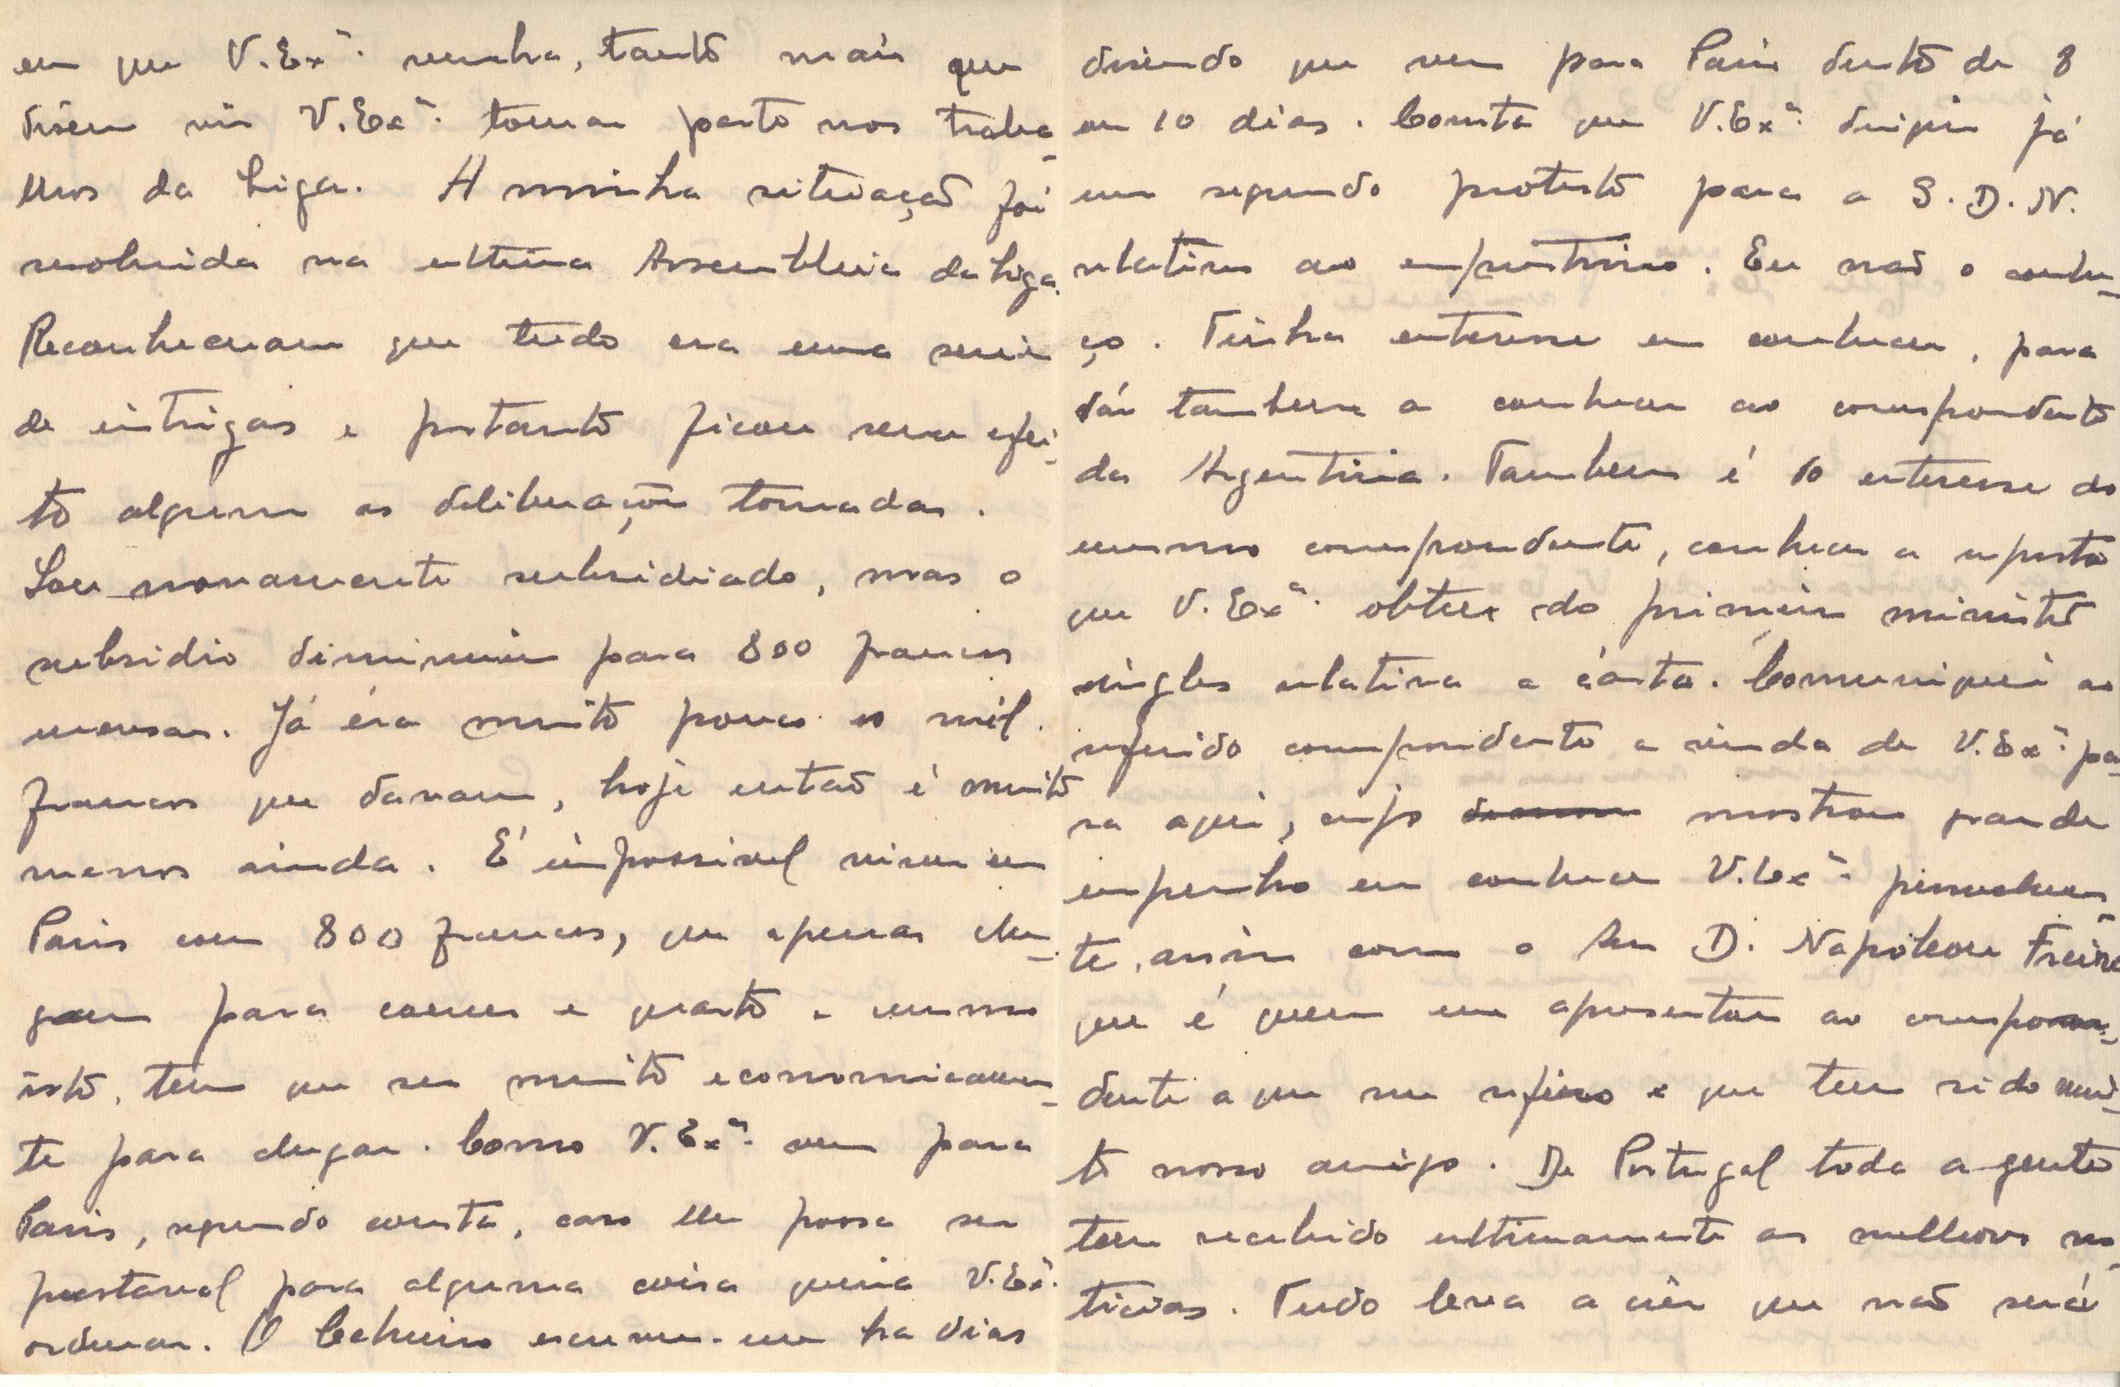 em que V. Exª. venha, tanto mais que
dizem vir V. Exª. tomar parte nos traba-
lhos da Liga. A minha situação foi
resolvida na ultima Assembleia da Liga.
Reconheceram que tudo era uma serie
de intrigas e portanto ficou sem efei-
to algum as deliberações tomadas.
Sou novamente subsidiado, mas o
subsidio diminuiu para 800 francos
mensaes. Já éra muito pouco os mil
francos que davam, hoje então é muito
menos ainda. É impossivel viver em
Paris com 800 francos, que apenas che-
gam para comer e quarto e mesmo
isto, tem que ser muito economicamen-
te para chegar. Como V. Exª. vem para
Paris, segundo consta, caso lhe possa ser
prestavel para alguma coisa queira V. Exª.
ordenar. O Calheiro escreveu-me ha dias
dizendo que vem para Paris dentro de 8
ou 10 dias. Consta que V. Exª. dirigiu já
um segundo protesto para a S. D. N.
relativo ao emprestimo. Eu não o conhe-
ço. Tinha enteresse em conhecer, para
dár tambem a conhecer ao correspondente
da Argentina. Tambem é do enteresse do
mesmo correspondente, conhecer a resposta
que V. Exª. obteve do primeiro ministro
inglês relativa a carta. Comuniquei ao
referido correspondente a vinda de V. Exª. pa-
ra aqui, cujo mostrou grande
empenho em conhecer V. Exª. pessoalmen-
te, assim como o Snr D. Napoleon Freire
que é quem me apresentou ao correspon-
dente a que me refiro e que tem sido mui-
to nosso amigo. De Portugal toda a gente
tem recebido ultimamente as melhores no-
ticias. Tudo leva a crêr que não será